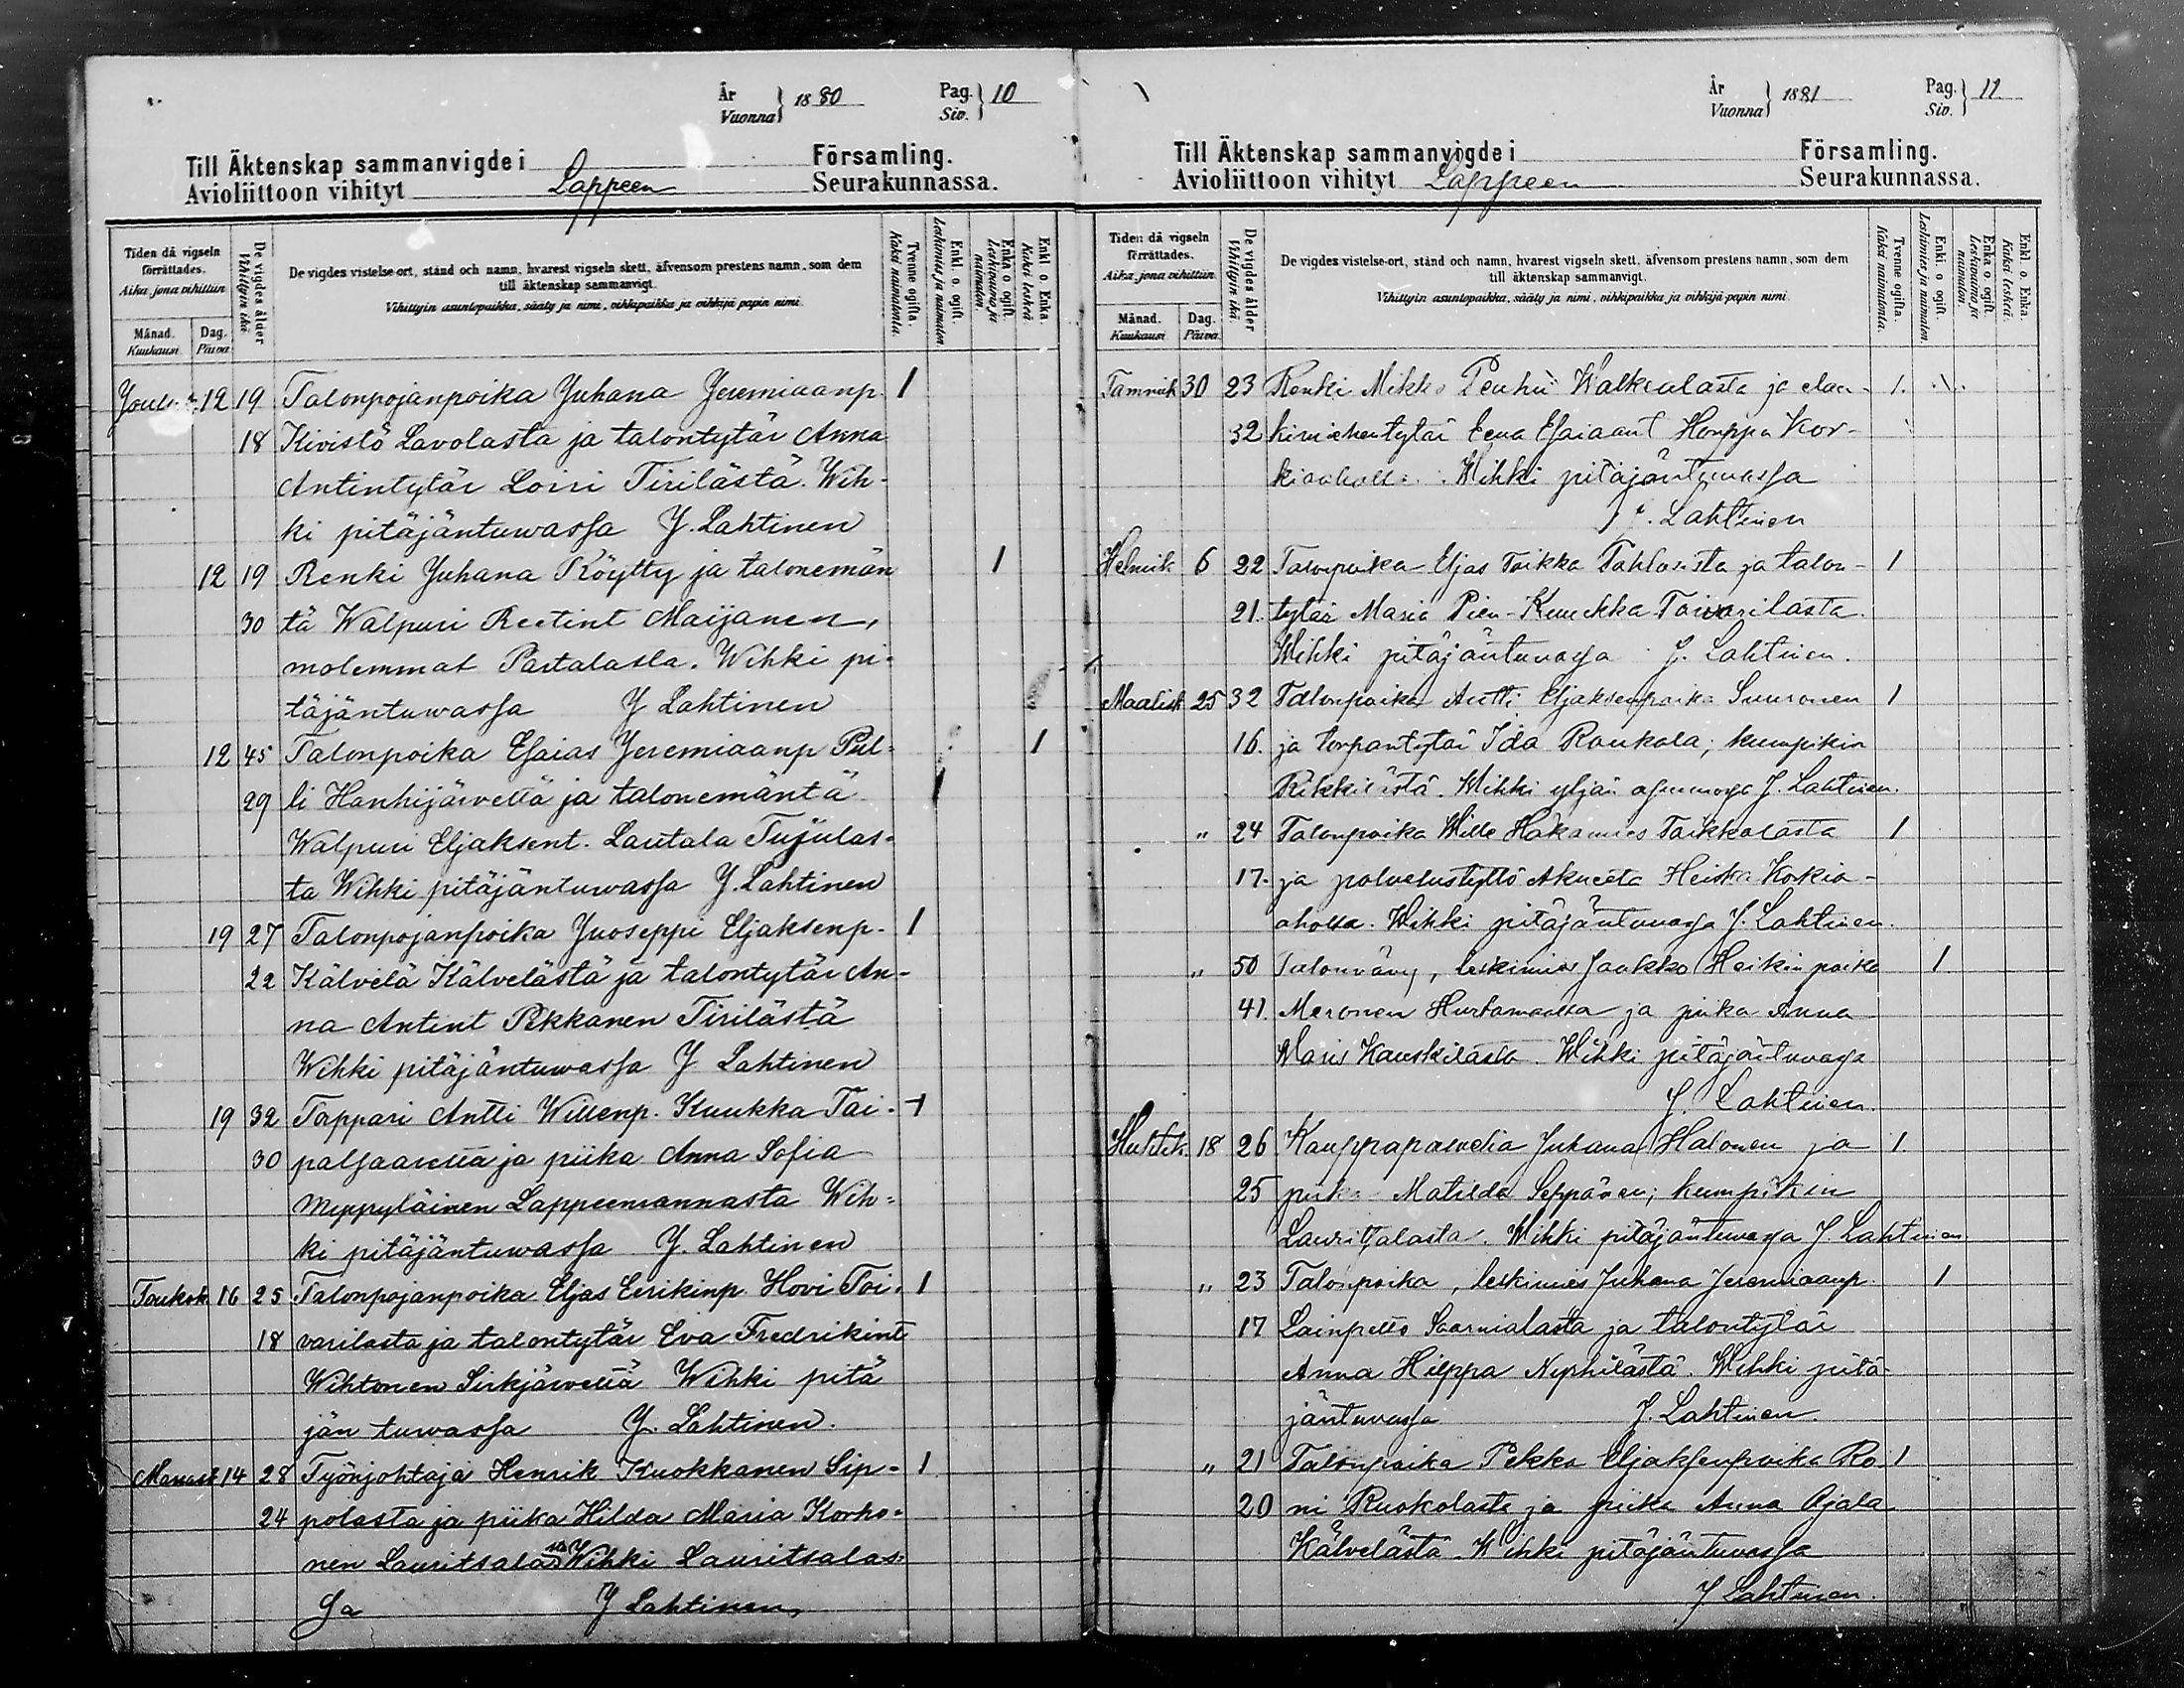 År
Vuonna } 1880 Pag.
Siv. } 10
Till Äktenskap sammanvigde i Församling.
Avioliittoon vihityt Lappeen Seurakunnassa.
Tiden då vigseln förrättades.
Aika, jona vihittiin
Månad.
Kuukausi
Dag.
Päivä
De vigdes ålder
Vihittyin ikä
De vigdes vistelse-ort, stånd och namn, hvarest vigseln skett, äfvensom prestens namn, som dem
till äktenskap sammanvigt.
Vihittyin asuntopaikka, sääty ja nimi, vihkipaikka ja vihkijä-papin nimi
Tvenne ogifta.
Kaksi naimatonta.
Enkl. o. ogift.
Leskimies ja naimaton
Enka o. ogift.
Leskivaimo ja naimaton.
Enkl. o. Enka.
Kaksi leskeä
12 19 Talonpojanpoika Juhana Jeremiaanp. 1
18 Kivistö Lavolasta ja talontytär Anna
Antintytär Loiri Tirilästä. Wih-
ki pitäjäntuwassa J. Lahtinen
12 19 Renki Juhana Köytty ja talonemän 1
30 tä Walpuri Reetint Maijanen,
molemmat Partalasta. Wihki pi-
täjäntuwassa J Lahtinen
12 45 Talonpoika Esaias Jeremiaanp Pul- 1
29 li Hanhijärveltä ja talonemäntä
Walpuri Eljaksent. Lautala Tujulas-
ta Wihki pitäjäntuwassa J. Lahtinen
19 27 Talonpojanpoika Juoseppi Eljaksenp. 1
22 Kälvelä Kälvelästä ja talontytär An-
na Antint Pekkanen Tirilästä
Wihki pitäjäntuwassa J Lahtinen
19 32 Torppari Antti Willenp. Kuukka Tai- 1
30 palsaarelta ja piika Anna Sofia
Myppyläinen Lappeenrannasta Wih-
ki pitäjäntuwassa J. Lahtinen
Toukok 16 25 Talonpojanpoika Eljas Eerikinp. Hovi Toi- 1
18 varilasta ja talontytär Eva Fredrikint
Wihtonen Sirkjärveltä Wihki pitä
jän tuwassa J. Lahtinen.
Marrask 14 28 Työnjohtaja Henrik Kuokkanen Sip- 1
24 polasta ja piika Hilda Maria Korho-
nen Lauritsalasta Wihki Lauritsalas-
sa J Lahtinen,
År
Vuonna } 1881 Pag.
Siv. } 11
Till Äktenskap sammanvigde i Församling.
Avioliittoon vihityt Lappeen Seurakunnassa.
Tiden då vigseln förrättades.
Aika, jona vihittiin
Månad.
Kuukausi
Dag.
Päivä
De vigdes ålder
Vihittyin ikä.
De vigdes vistelse-ort, stånd och namn, hvarest vigseln skett, äfvensom prestens namn, som dem
till äktenskap sammanvigt.
Vihittyin asuntopaikka, sääty ja nimi, vihkipaikka ja vihkijä-papin nimi
Tvenne ogifta.
Kaksi naimatonta.
Enkl. o ogift.
Leskimies ja naimaton
Enka o. ogift.
Leskivaimo ja naimaton.
Enkl. o. Enka.
Kaksi leskeä.
Tammik 30 23 Renki Mikko Walkealasta ja elan- 1.
32 Eeva Esaiaant Honppa Kor-
Wihki pitäjäntuwassa
J. Lahtinen
Helmik 6 22 Talonpoika Eljas Toikka ja talon- 1
21. tytär Maria Pien-Kuukka Toivarilasta.
Wihki pitäjäntuvassa J. Lahtinen.
Maalisk 25 32 Talonpoika Antti Eljaksenpoika Suuronen 1
16. ja torpantytär Ida Raukola; kumpikin
Rikkilästä. Wihki J. Lahtinen.
" 24 Talonpoika Wille Hakamies Toikkalasta 1
17. ja palvelustyttö Heiska Korkia-
aholta. Wihki pitäjäntuvassa J. Lahtinen.
" 50 Talonvävy, leskimies Jaakko Heikinpoika 1
41. Meronen Hurtamaalta ja piika Anna
Kauskilasta. Wihki pitäjäntuvassa
J. Lahtinen.
Huhtik. 18 26 Kauppapalvelia Juhana Halonen ja 1.
25 piika Matilda Seppänen; kumpikin
Lauritsalasta. Wihki pitäjäntuvassa J. Lahtinen
" 23 Talonpoika, leskimies Juhana Jeremiaanp. 1
17 Lainpelto ja talontytär
Anna Hieppa Wihki pitä-
jäntuvassa J. Lahtinen.
" 21 Talonpoika Pekka Eljaksenpoika Ro- 1
20 ni Ruokolasta ja piika Anna Ojala
Kälvelästä. Wihki pitäjäntuvassa
J Lahtinen.